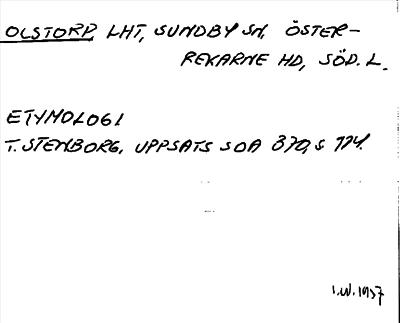 OLSTORP, LHT, SUNDBY SN, ÖSTER-
REKARNE HD, SÖD. L.
ETYMOLOGI
T. STENBORG, UPPSATS SOA 370, S 114.
I.W. 1937